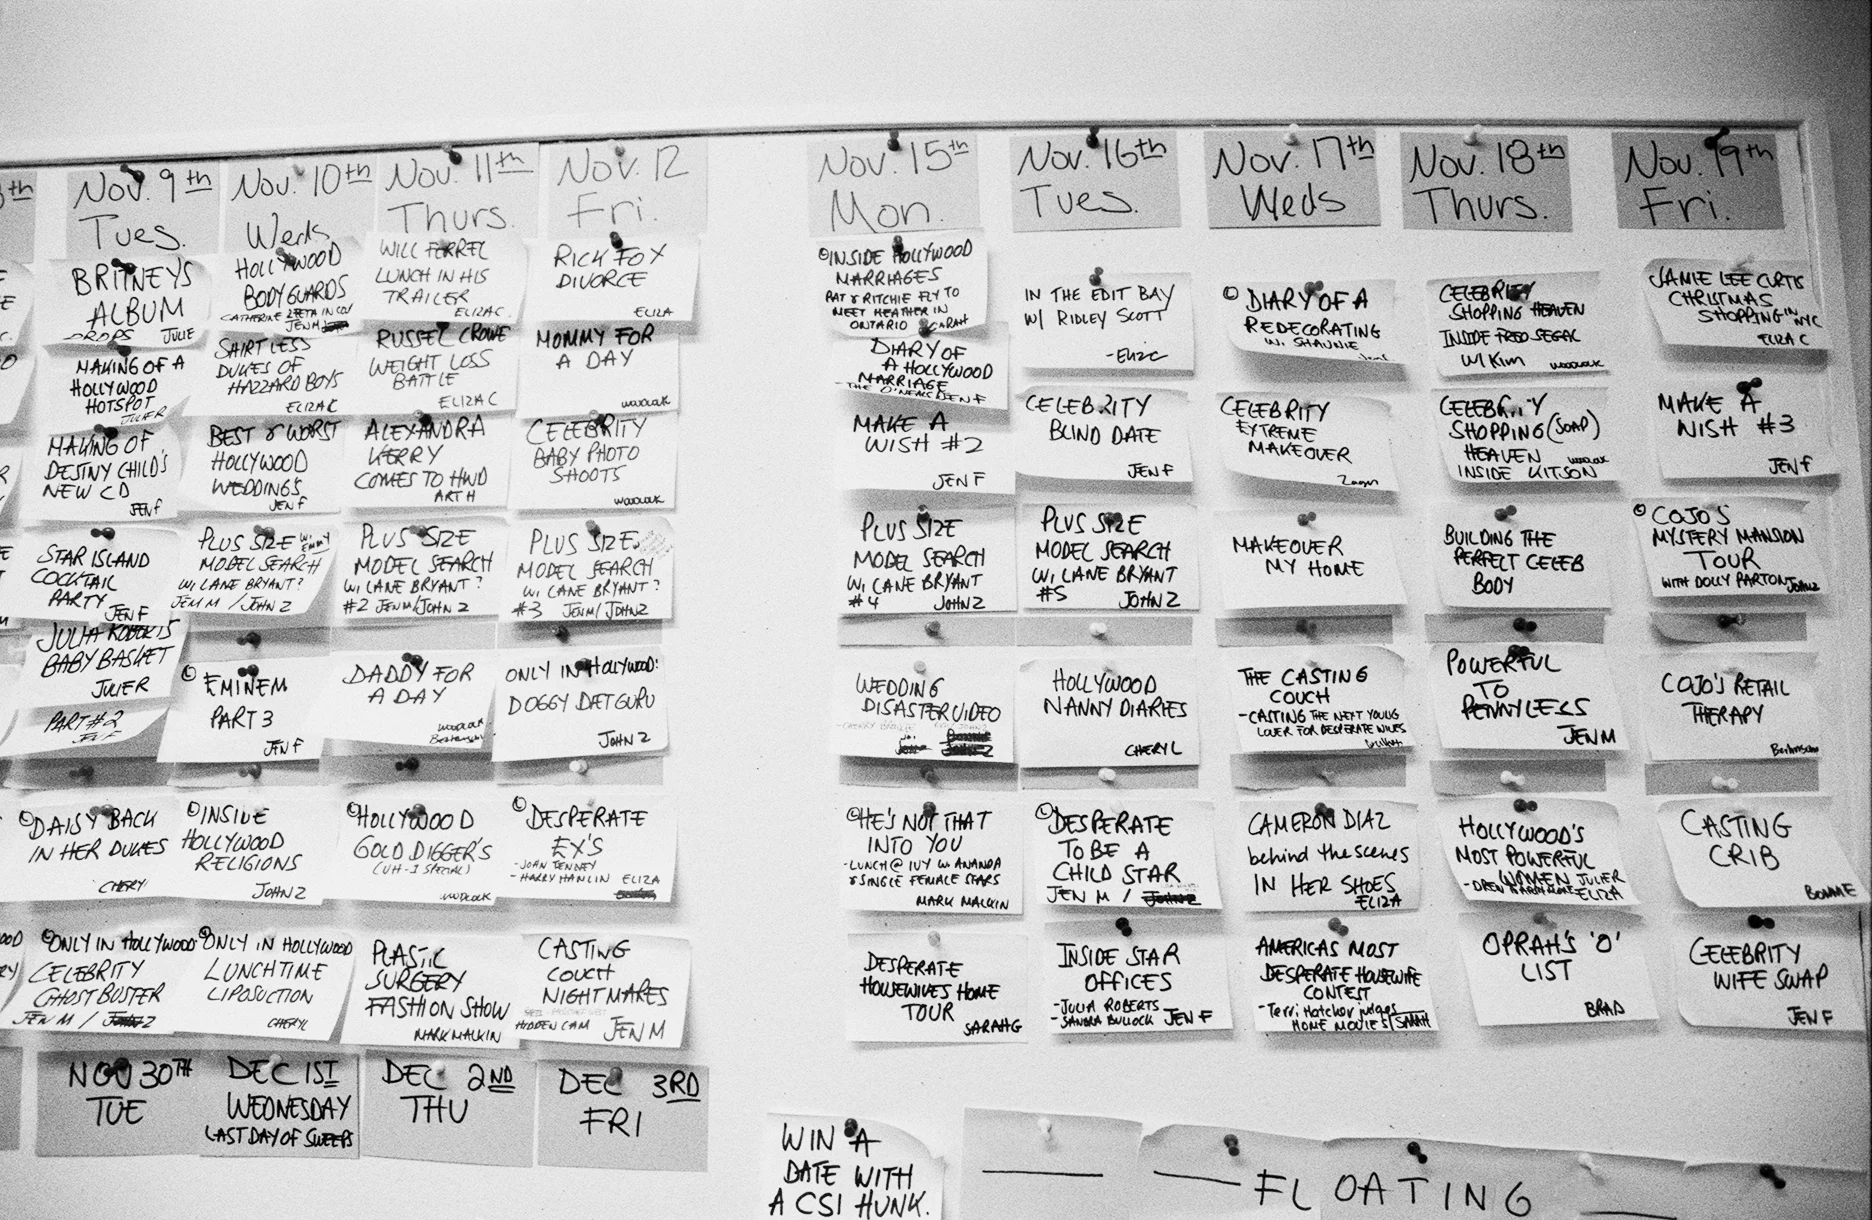 Nov. 9th
Tues.
BRITNEYS
ALBUM
DROPS JULIE
MAKING OF A
HOLLYWOOD
HOTSPOT
JULIER
MAKING OF
DESTNY CHILD'S
NEW CD
JEN F
STAR ISLAND
COCKTAIL
PARTY
JEN F
JULIA ROBERTS
BABY BASKET
JULIER
PART #2
JEN F
DAISY BACK
IN HER DUKES
CHERYL
ONLY IN HOLLYWOOD
CELEBRITY
GHOSTBUSTER
JEN M / JOHN Z
NOV 30TH
TUE
Nov. 10th
Weds
HOLLYWOOD
BODYGUARDS
CATHERINE ZEETA IN
JEN M
SHIRTLESS
DUKES OF
HAZZARD BOYS
ELIZA C
BEST & WORST
HOLLYWOOD
WEDDINGS
JEN F
PLUS SIZE W. EMMY
MODEL SEARCH
W. LANE BRYANT?
JEN M / JOHN Z
EMINEM
PART 3
JEN F
INSIDE
HOLLYWOOD
RELIGIONS
JOHN Z
ONLY IN HOLLYWOOD
LUNCHTIME
LIPOSUCTION
CHERYL
DEC 1ST
WEDNESDAY
LAST DAY OF SWEEPS
Nov. 11th
Thurs.
WILL FERREL
LUNCH IN HIS
TRAILER
ELIZA C.
RUSSEL CROWE
WEIGHT LOSS
BATTLE
ELIZA C
ALEXANDRA
KERRY
COMES TO HWD
ART H
PLUS SIZE
MODEL SEARCH
W. LANE BRYANT?
#2 JEN M/JOHN Z
DADDY FOR
A DAY
WOODLOCK
HOLLYWOOD
GOLD DIGGER'S
(VH-1 SPECIAL)
WOODLOCK
PLASTIC
SURGERY
FASHION SHOW
MARK MALKIN
DEC 2ND
THU
Nov. 12
Fri.
RICK FOX
DIVORCE
ELIZA
MOMMY FOR
A DAY
WOODLOCK
CELEBRITY
BABY PHOTO
SHOOTS
WOODLOCK
PLUS SIZE
MODEL SEARCH
W. LANE BRYANT?
#3 JEN M/ JOHN Z
ONLY IN HOLLYWOOD:
DOGGY DIET GURU
JOHN Z
DESPERATE
EX'S
-JOHN TENNEY
-HARRY HAMLIN ELIZA
CASTING
COUCH
NIGHTMARES
HIDDEN CAM JEN M
DEC 3RD
FRI
Nov. 15th
Mon.
INSIDE HOLLYWOOD
MARRIAGES
PAT & RITCHIE FLY TO
MEET HEATHER IN
ONTARIO SARAH
DIARY OF
A HOLLYWOOD
MARRIAGE
-THE O'NEALS JEN F
MAKE A
WISH #2
JEN F
PLUS SIZE
MODEL SEARCH
W. LANE BRYANT
#4 JOHN Z
WEDDING
DISASTER VIDEO
HE'S NOT THAT
INTO YOU
-LUNCH @ IVY W. AMANDA
& SINGLE FEMALE STARS
MARK MALKIN
DESPERATE
HOUSEWIVES HOME
TOUR
SARAH G
Nov. 16th
Tues.
IN THE EDIT BAY
W/ RIDLEY SCOTT
-Eliz C
CELEBRITY
BLIND DATE
JEN F
PLUS SIZE
MODEL SEARCH
W. LANE BRYANT
#5 JOHN Z
HOLLYWOOD
NANNY DIARIES
CHERYL
DESPERATE
TO BE A
CHILD STAR
JEN M / JOHN Z
INSIDE STAR
OFFICES
-JULIA ROBERTS
-SANDRA BULLOCK JEN F
Nov. 17th
Weds
DIARY OF A
REDECORATING
W. SHAUNIE
CELEBRITY
EXTREME
MAKEOVER
MAKEOVER
MY HOME
THE CASTING
COUCH
-CASTING THE NEXT YOUNG
LOVER FOR DESPERATE WIVES
CAMERON DIAZ
behind the scenes
IN HER SHOES
ELIZA
AMERICAS MOST
DESPERATE HOUSEWIFE
CONTEST
-Terri Hatcher judges
HOME MOVIES SARAH
Nov. 18th
Thurs.
CELEBRITY
SHOPPING HEAVEN
INSIDE FRED SEGAL
W/ Kim WOODLOCK
CELEBRITY
SHOPPING (SOAP)
HEAVEN WOODLOCK
INSIDE KITSON
BUILDING THE
PERFECT CELEB
BODY
POWERFUL
TO
PENNYLESS
JEN M
HOLLYWOOD'S
MOST POWERFUL
WOMEN JULIER
-DREW BARRYMORE ELIZA
OPRAH'S 'O'
LIST
BRAD
Nov. 19th
Fri.
JAMIE LEE CURTIS
CHRISTMAS
SHOPPING IN NYC
ELIZA C
MAKE A
WISH #3
JEN F
COJO'S
MYSTERY MANSION
TOUR
WITH DOLLY PARTON JOHN Z
COJO'S RETAIL
THERAPY
CASTING
CRIB
BONNIE
CELEBRITY
WIFE SWAP
JEN F
WIN A
DATE WITH
A CSI HUNK.
FLOATING